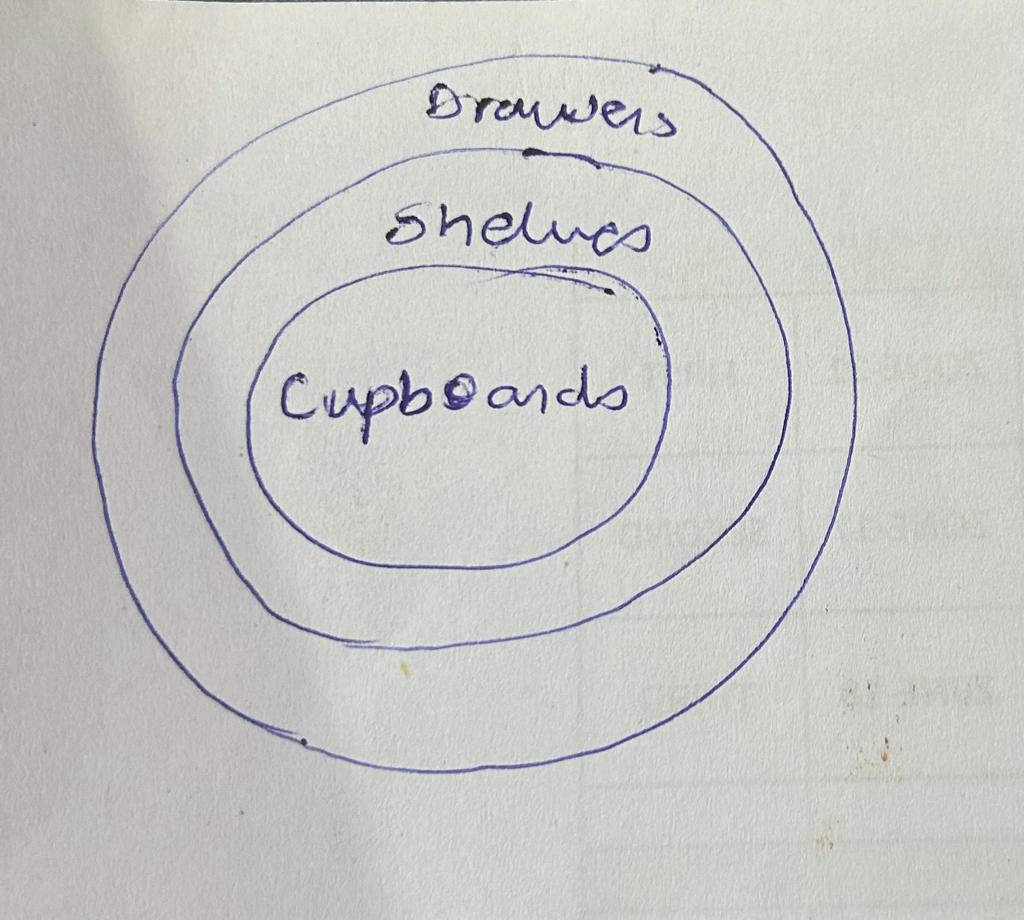 Drawers
Shelves
Cupboards